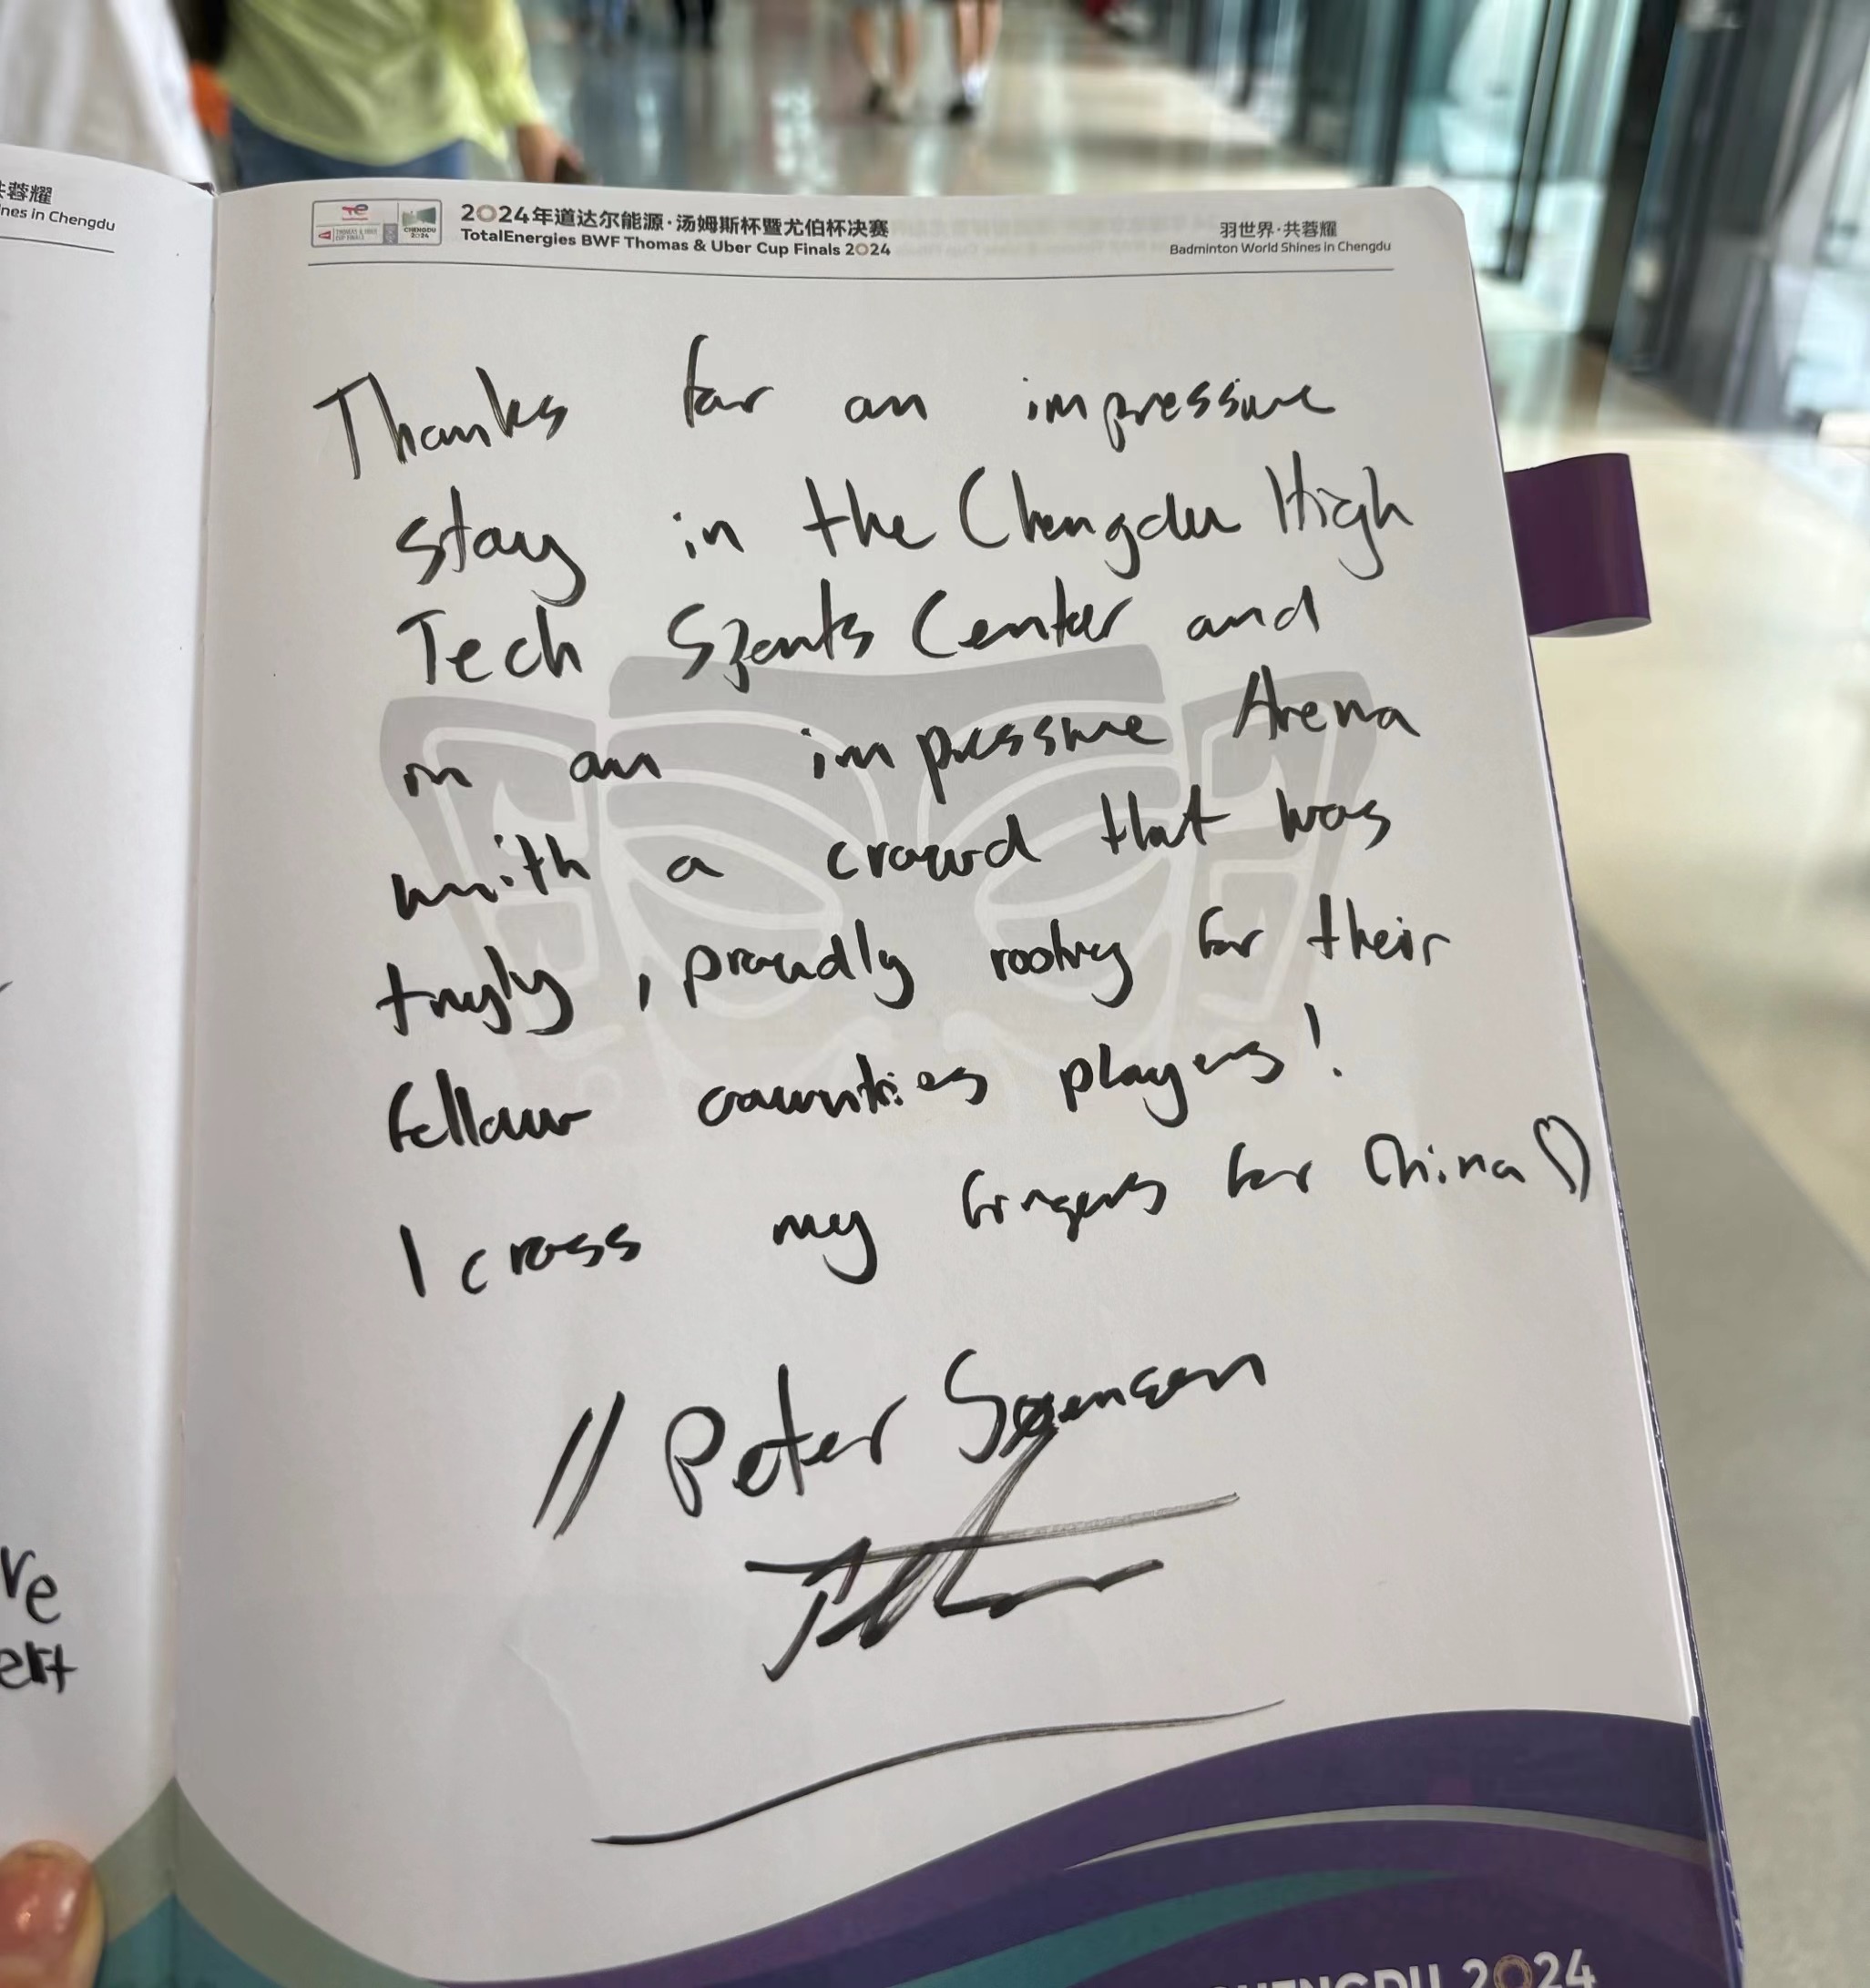 共蓉耀
nes in Chengdu
2024年道达尔能源·汤姆斯杯暨尤伯杯决赛
TotalEnergies BWF Thomas & Uber Cup Finals 2024
羽世界·共蓉耀
Badminton World Shines in Chengdu
THOMAS & UBER
CUP FINALS
CHENGDU
2024
Thanks for an impressive
stay in the Chengdu High
Tech Sports Center and
in an impressive Arena
with a crowd that was
truyly, proudly rooting for their
fellow countries players!
I cross my fingers for China♡
// Peter Sørensen
ve
ert
CHENGDU 2024